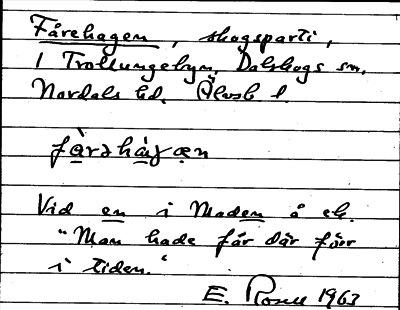 Fårehagen, skogsparti,
1 Trollungebyn, Dalskogs sn.
Nordals hd. Älvsb l.
fårəhàɣæn
Vid en i Maden å ek.
"Man hade får där förr
i tiden."
E. Rosell 1963